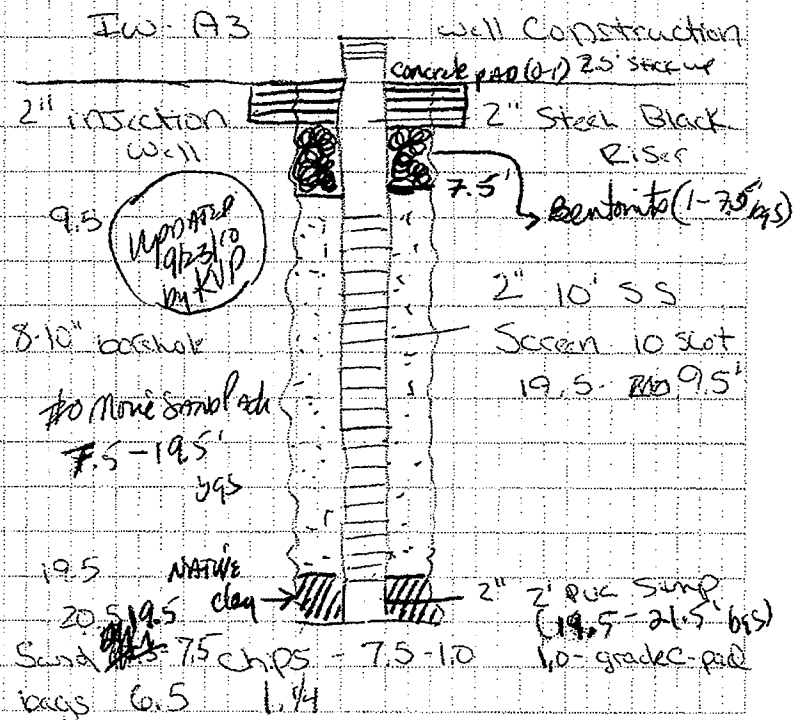 IW-A3
Well Construction
concrete PAD (0-1') 2.5' stick up
2" injection
Well
2" Steel Black
Riser
7.5'
Bentonite (1-7.5' bgs)
9.5
UPDATED
9/23/10
by KVP
2" 10' SS
Screen 10 slot
19.5 - 9.5'
8-10" borehole
#0 Morie Sand Pack
7.5-19.5'
bgs
19.5
NATIVE
clay
20.5 19.5
2" 2' PVC Sump
(19.5-21.5' bgs)
Sand 7.5 chips - 7.5-1.0
1.0-grade C-pad
bags 6.5 1.1/4